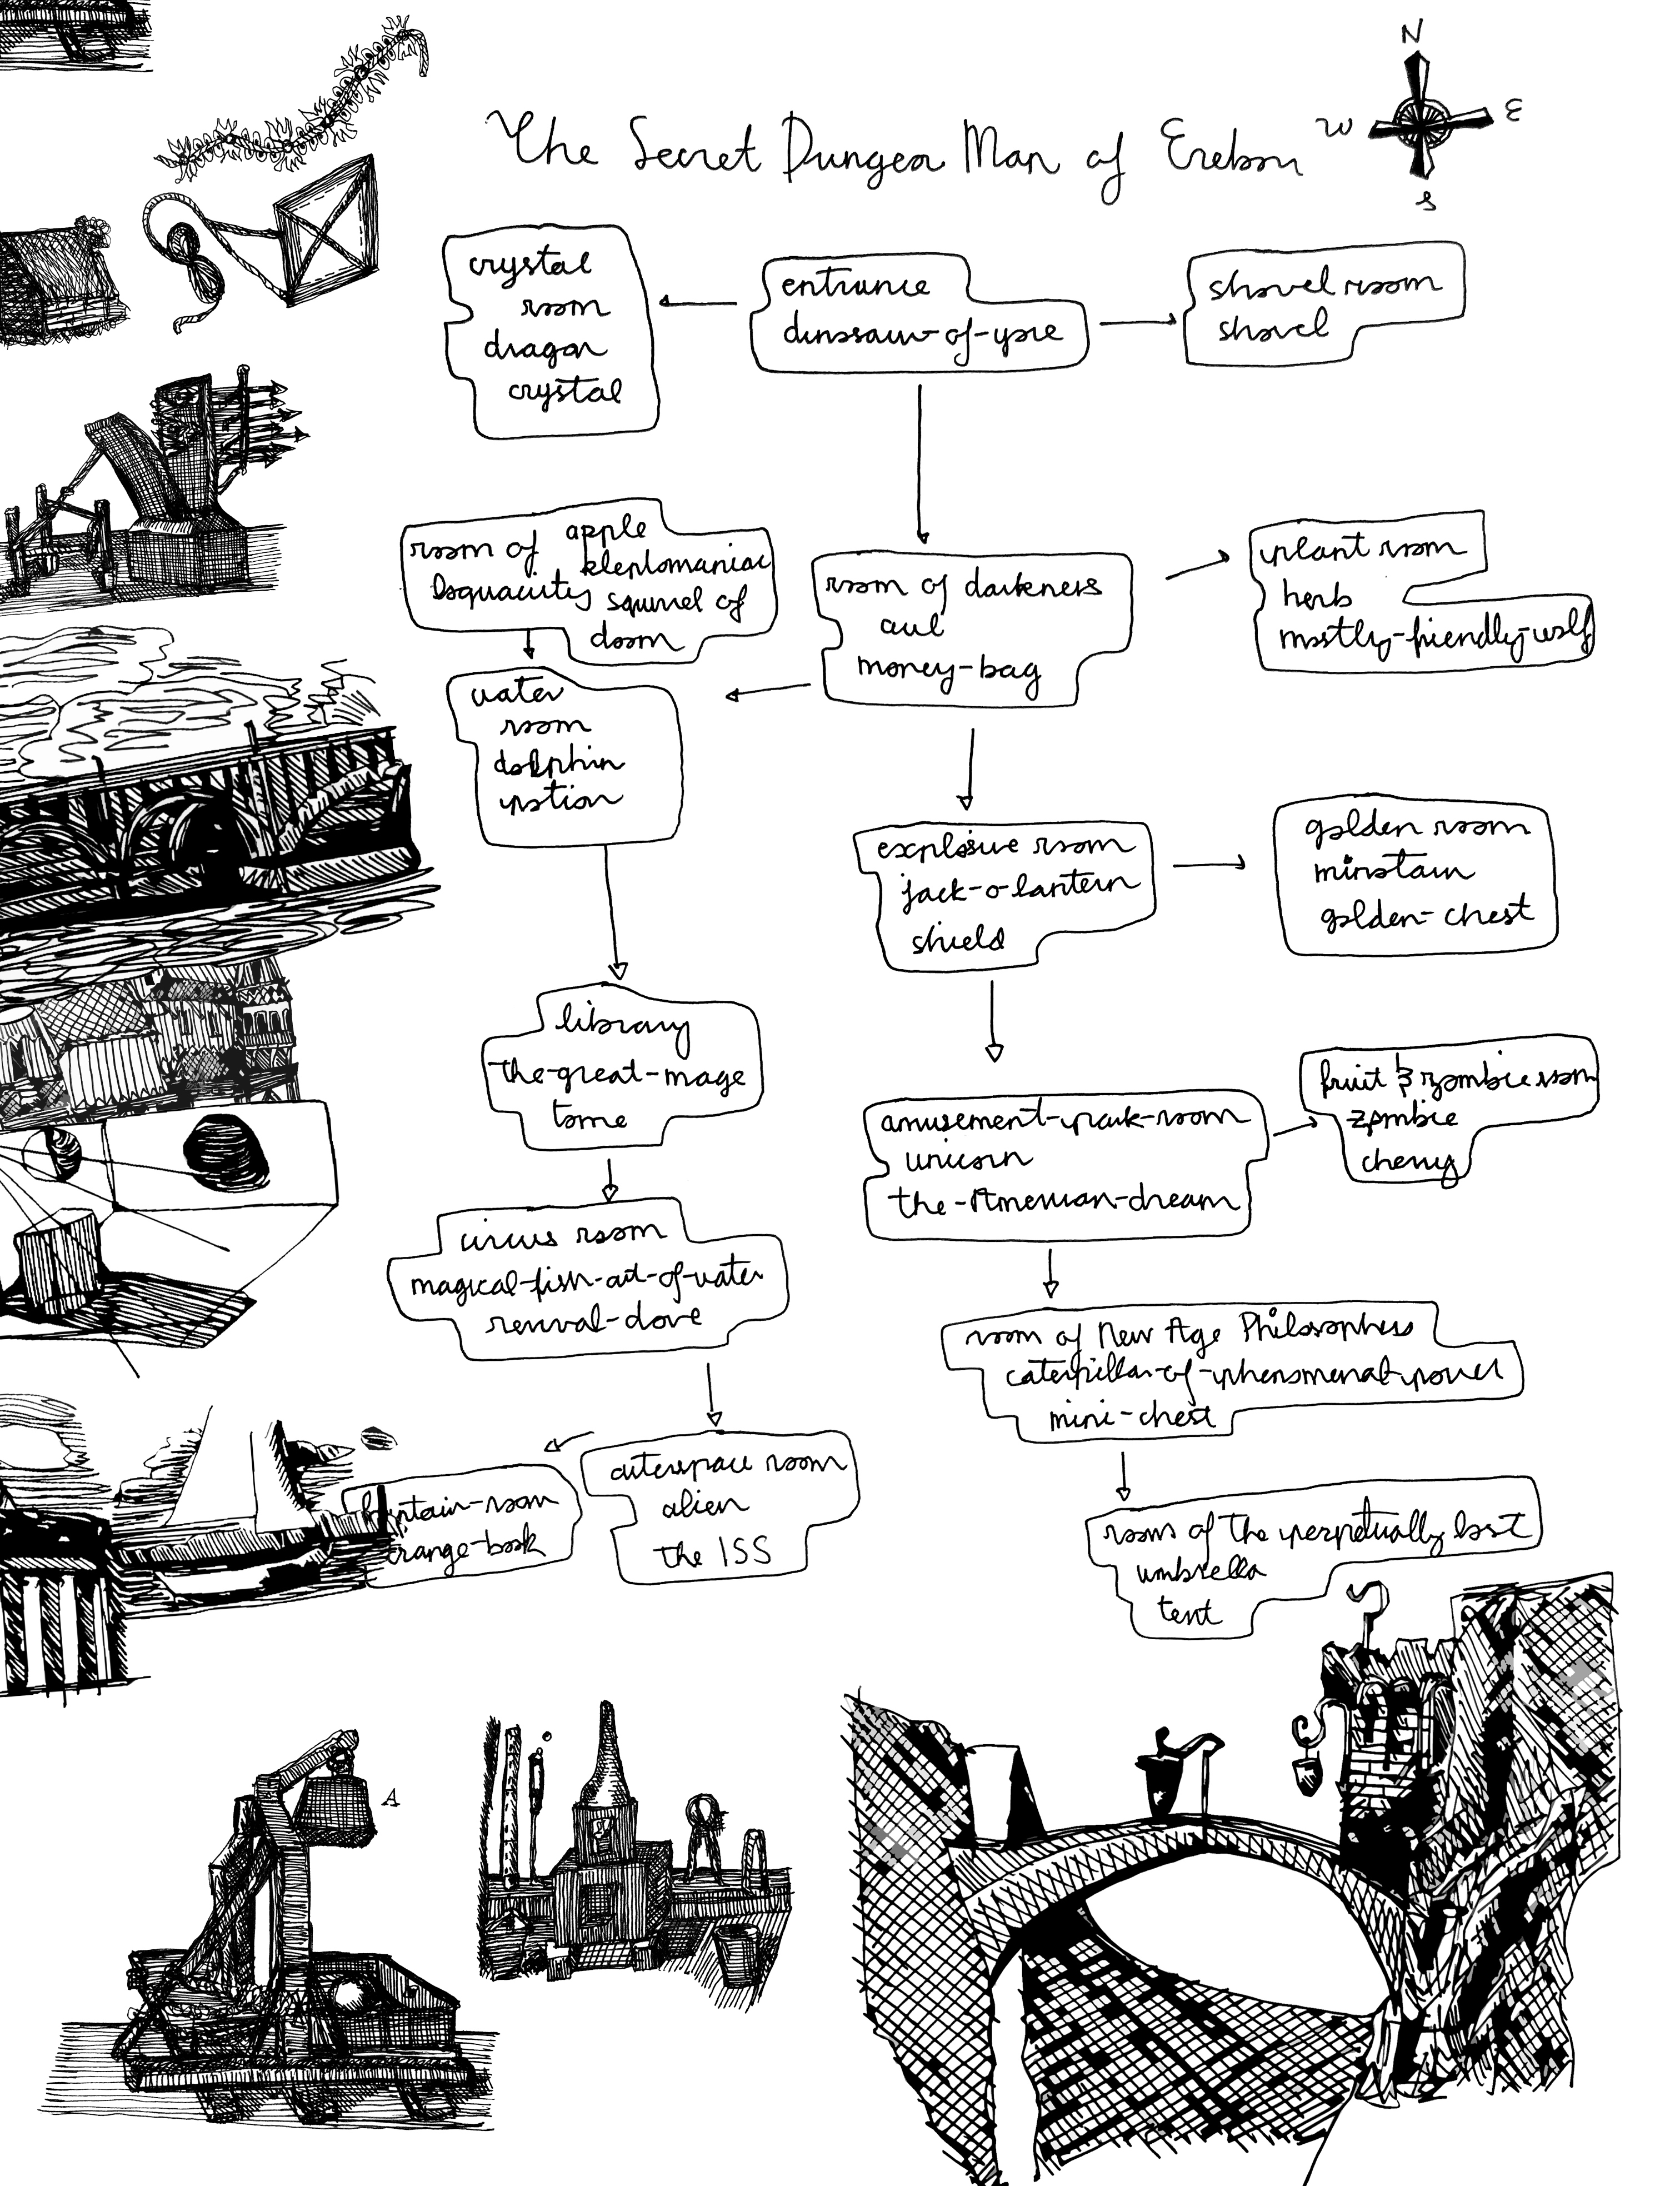 N
W
E
S
The Secret Dungeon Map of Erebor
crystal
room
dragon
crystal
entrance
dinosaur-of-yore
shovel room
shovel
room of
loquacity
apple
kleptomaniac
squirrel of
doom
room of darkness
owl
money-bag
plant room
herb
mostly-friendly-wolf
water
room
dolphin
potion
explosive room
jack-o-lantern
shield
golden room
minotaur
golden-chest
library
the-great-mage
tome
amusement-park-room
unicorn
the-American-dream
fruit & zombie room
zombie
cherry
circus room
magical-fish-out-of-water
revival-dove
room of New Age Philosophers
caterpillar-of-phenomenal-power
mini-chest
outerspace room
alien
the ISS
fountain-room
strange-book
rooms of the perpetually lost
umbrella
tent
A